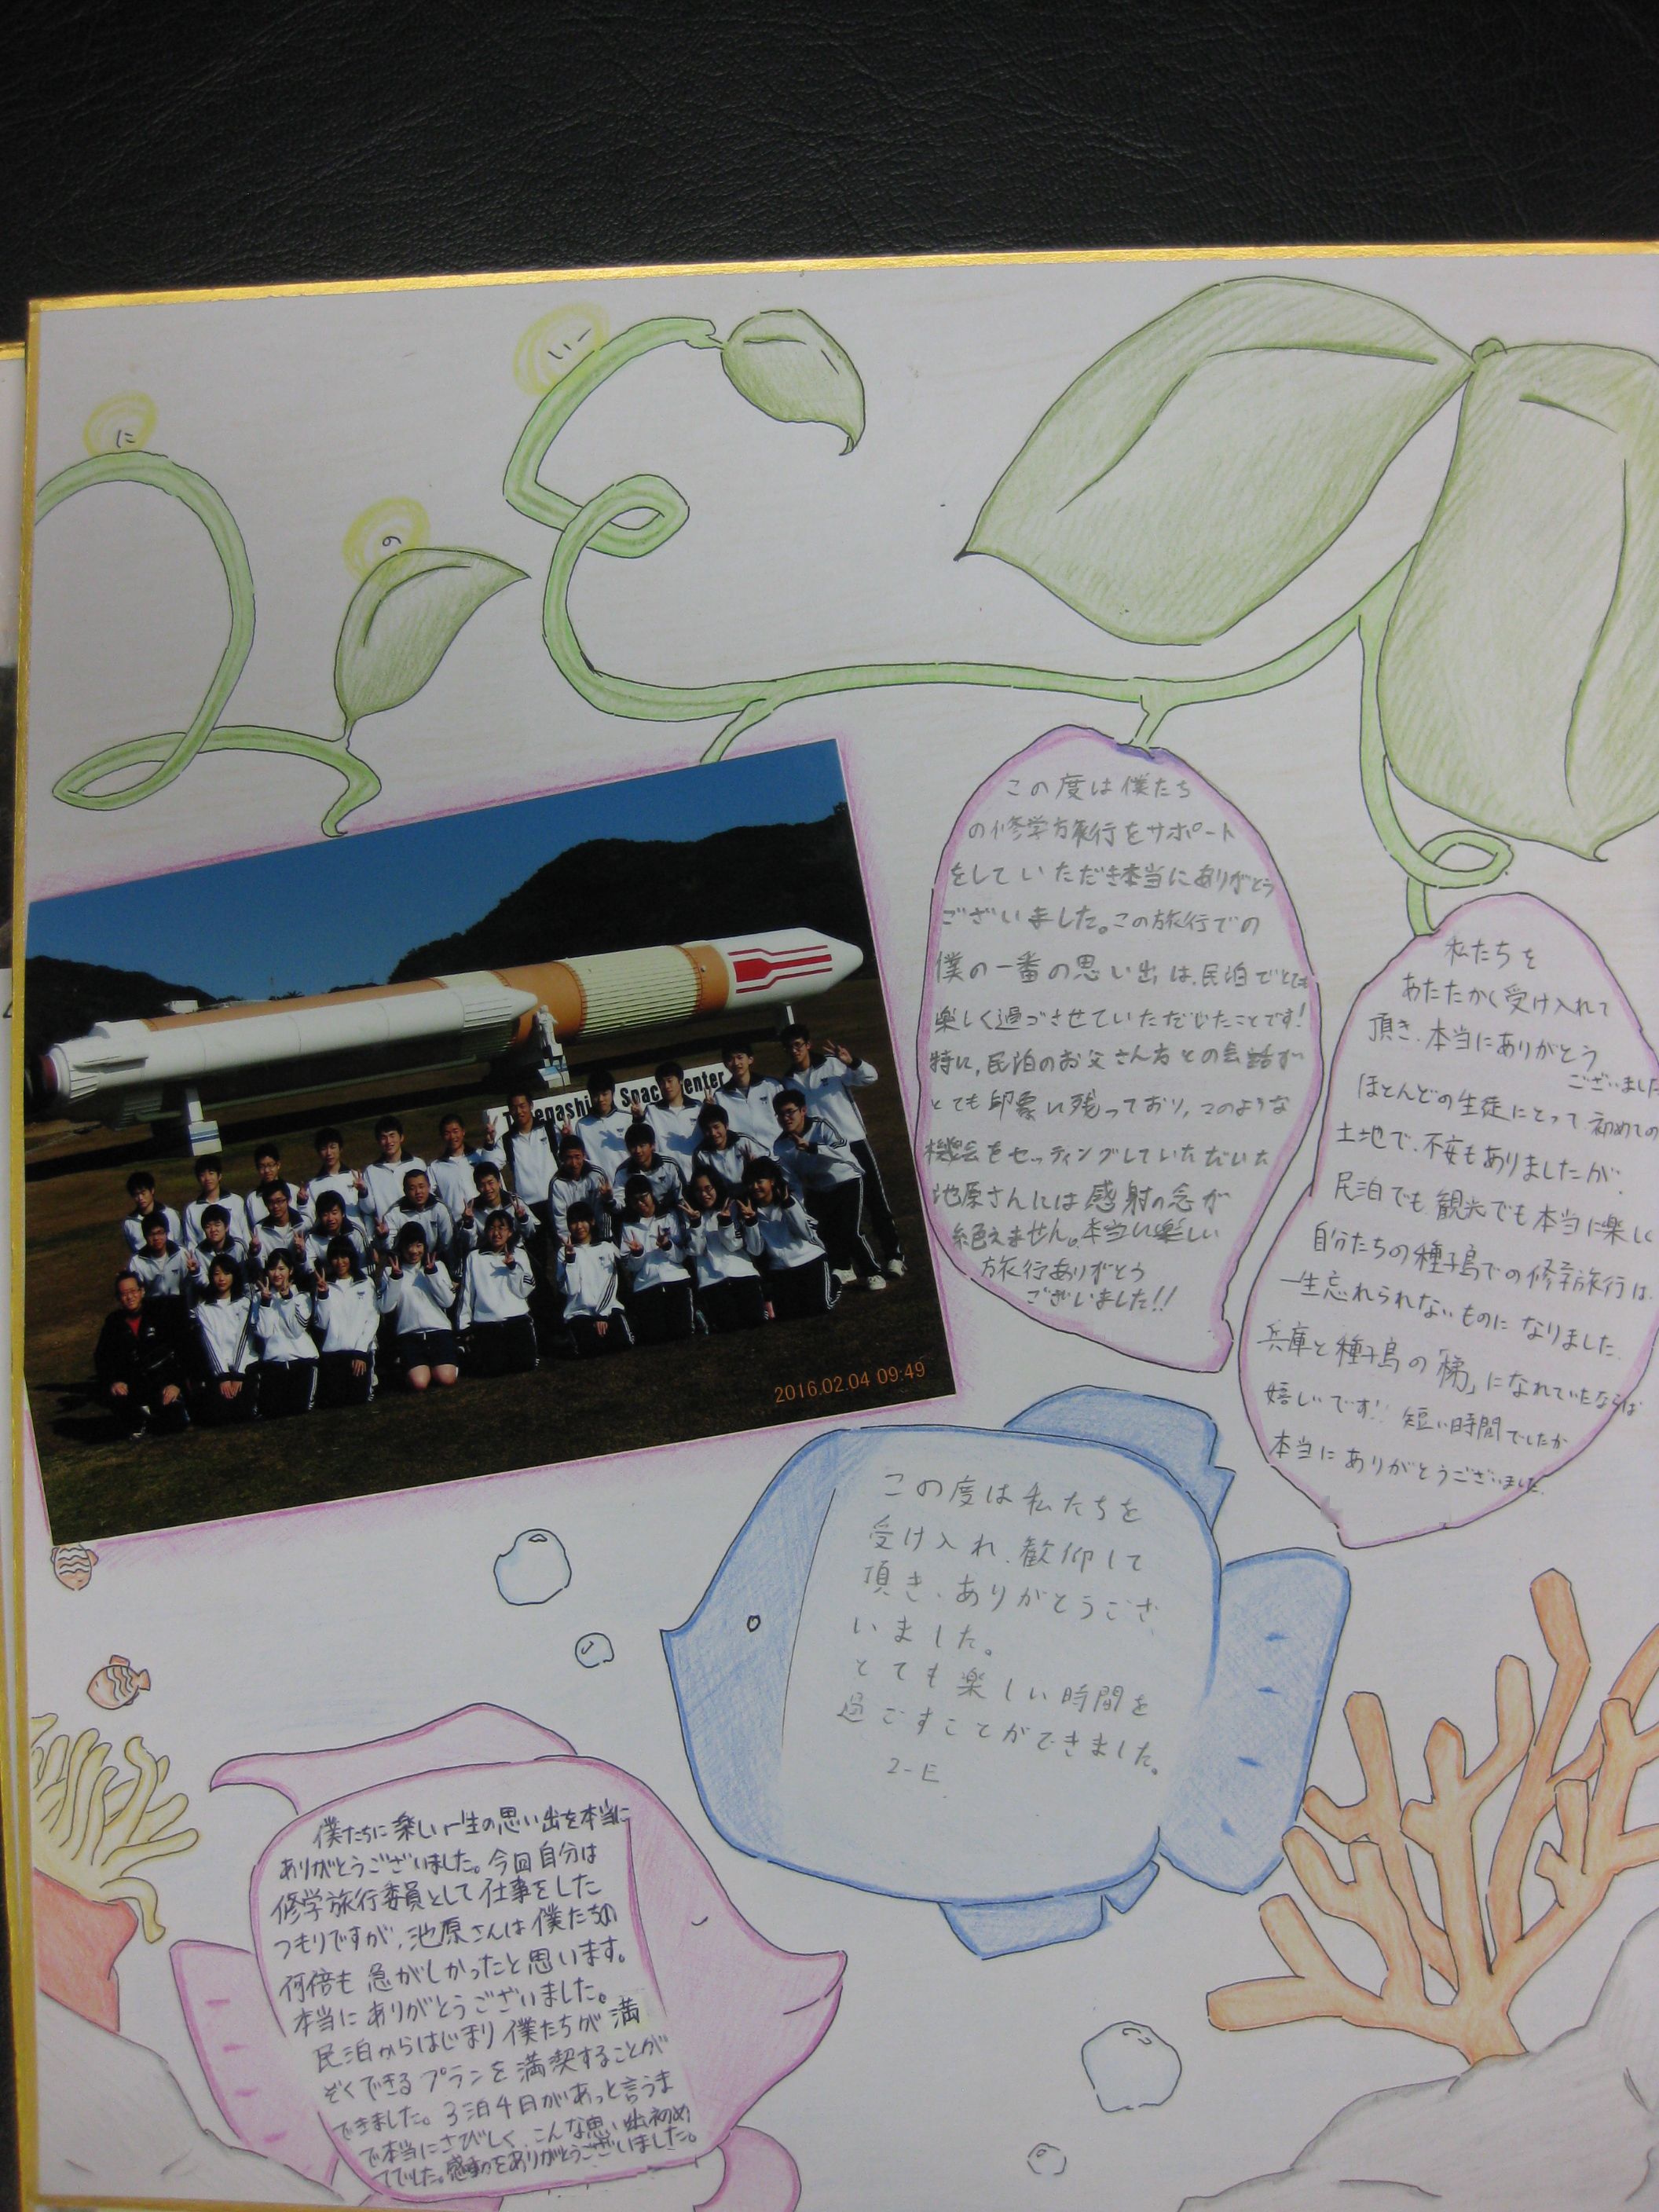 に
い
の
Space Center
2016.02.04 09:49
この度は僕たち
の修学旅行をサポート
をしていただき本当にありがとう
ございました。この旅行での
僕の一番の思い出は、民泊でとても
楽しく過ごさせていただいたことです!
特に、民泊のお父さん方との会話が
とても印象に残っており、このような
機会をセッティングしていただいた
池原さんには感射の念が
絶えません。本当に楽しい
旅行ありがとう
ございました!!
私たちを
あたたかく受け入れて
頂き、本当にありがとう
ございました
ほとんどの生徒にとって初めての
土地で、不安もありましたが、
民泊でも観光でも本当に楽しく
自分たちの種子島での修学旅行は、
一生忘れられないものになりました。
兵庫と種子島の「梯」になれていたならば
嬉しいです!! 短い時間でしたが
本当にありがとうございました。
この度は私たちを
受け入れ、歓仰して
頂き、ありがとうござ
いました。
とても楽しい時間を
過ごすことができました。
2-E
僕たちに楽しい一生の思い出を本当に
ありがとうございました。今回自分は
修学旅行委員として仕事をした
つもりですが、池原さんは僕たちの
何倍も急がしかったと思います。
本当にありがとうございました。
民泊からはじまり僕たちが満
ぞくできるプランを満喫することが
できました。3泊4日があっと言うま
で本当にさびしく、こんな思い出初め
てでした。をありがとうございました。